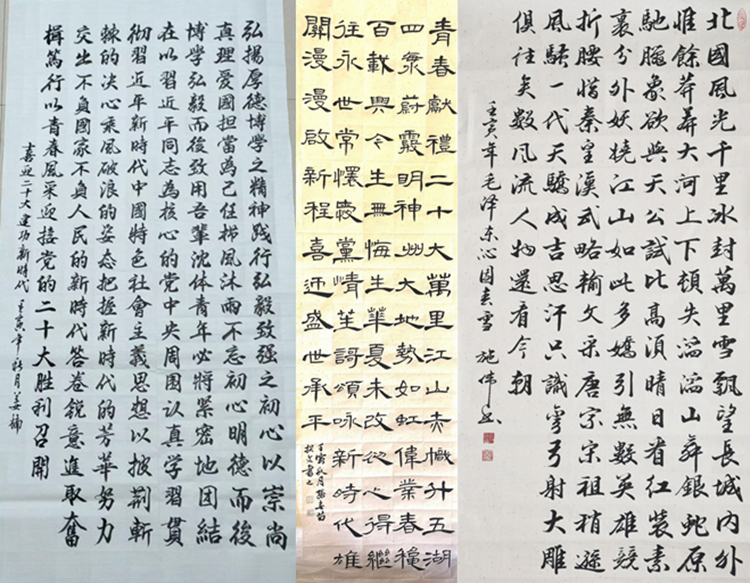 弘揚厚德博學之精神践行弘毅致强之初心以崇尚
真理爱國担當為己任栉風沐雨不忘初心明德而後
博学弘毅而後致用吾輩沈体青年必將紧密地团結
在以習近平同志為核心的党中央周围认真学習貫
彻習近平新時代中國特色社會主義思想以披荆斬
棘的决心乘風破浪的姿态把握新時代的芳華努力
交出不負國家不負人民的新時代答卷锐意進取奮
楫篤行以青春風采迎接党的二十大胜利召開
喜迎二十大建功新時代 壬寅年秋月姜锦
青春獻禮二十大萬里江山赤幟升五湖
四象蔚霞明神州大地勢如虹偉業春穐
百載興今生無悔生華夏未改從心得繼
往永世常懷感黨情笙謌頌詠新時代雄
關漫漫啟新程喜迎盛世承平
壬寅秋月孫
北國風光千里冰封萬里雪飄望長城内外
惟餘莽莽大河上下頓失滔滔山舞銀蛇原
馳臘象欲與天公試比高須晴日看红裝素
裹分外妖娆江山如此多嬌引無數英雄競
折腰惜秦皇漢武略輸文采唐宗宋祖稍遜
風騷一代天驕成吉思汗只識彎弓射大雕
俱往矣数风流人物還看今朝
壬寅年毛泽东沁园春雪 施伟书